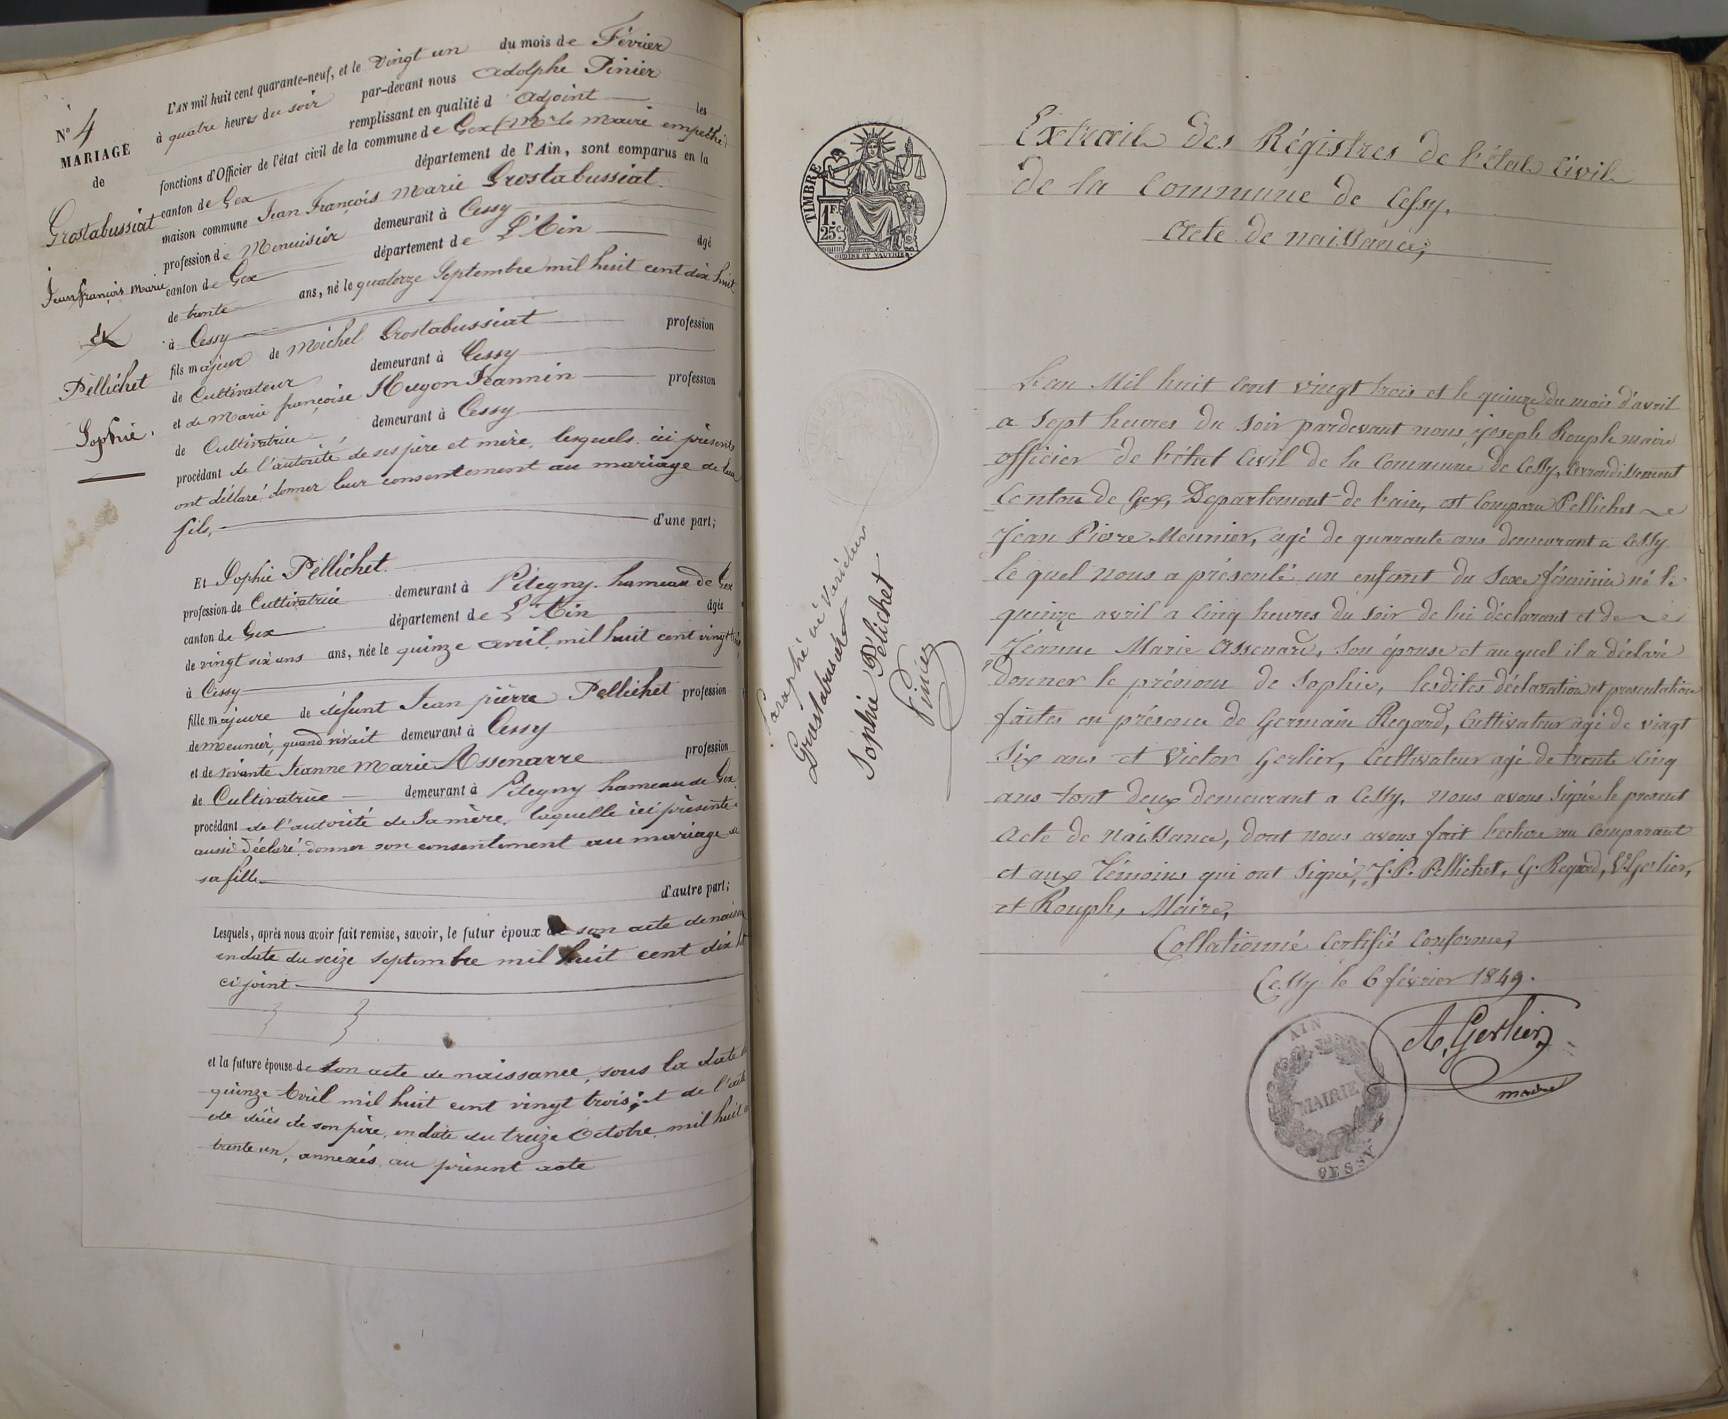 N° 4
MARIAGE
de
Grostabussiat
Jean françois Marie
&
Pellichet
Sophie.
L'AN mil huit cent quarante-neuf, et le vingt un du mois de Février
à quatre heures du soir par-devant nous adolphe Pinier
remplissant en qualité d adjoint les
fonctions d'Officier de l'état civil de la commune de Gex (Mr le maire empêché)
canton de Gex département de l'Ain, sont comparus en la
maison commune Jean François Marie Grostabussiat.
profession de Menuisier demeurant à Cessy
canton de Gex département de L'Ain âgé
de trente ans, né le quatorze Septembre mil huit cent dix huit
à Cessy
fils majeur de Michel Grostabussiat profession
de Cultivateur demeurant à Cessy
et de Marie françoise Hugon Jeannin profession
de Cultivatrice demeurant à Cessy
procédant de l'autorité de ses père et mère, lesquels ici présents
ont déclaré donner leur consentement au mariage de leur
fils, d'une part;
Et Sophie Pellichet.
profession de Cultivatrice demeurant à Pitegny hameau de Gex
canton de Gex département de L'Ain âgée
de vingt six ans ans, née le quinze avril mil huit cent vingt trois
à Cessy
fille majeure de défunt Jean pièrre Pellichet profession
de meunier, quand vivait demeurant à Cessy
et de vivante Jeanne Marie Assenarre profession
de Cultivatrice demeurant à Pitegny hameau de Gex
procédant de l'autorité de sa mère, laquelle ici présente
aussi déclaré donner son consentement au mariage de
sa fille d'autre part;
Lesquels, après nous avoir fait remise, savoir, le futur époux de son acte de naissance
en date du seize septembre mil huit cent dix huit
ci joint
et la future épouse de son acte de naissance, sous la date
quinze Avril mil huit cent vingt trois; et de l'acte
de décès de son père, en date du treize Octobre mil huit
trente un, annexés au présent acte
TIMBRE
1F.
25c.
Paraphé ne Varietur
Grostabussiat
Sophie Pélichet
Pinier
Extrait des Régistres de l'état Civil
de la Commune de Cessy.
Acte de naissance;
L'an Mil huit Cent vingt trois et le quinze du mois d'avril
a Sept heures du Soir pardevant nous, Joseph Rouph maire
officier de l'état Civil de la Commune de Cessy, arrondissement
Canton de Gex, Departement de l'ain, est Comparu Pellichet
Jean Pierre Meunier, agé de quarante ans demeurant a Cessy
le quel nous a présenté un enfant du Sexe féminin né le
quinze avril a Cinq heures du soir de lui déclarant et de
Jéanne Marie Assenare, Son épouse et au quel il a déclaré
donner le prénom de Sophie, lesdites déclaration et presentation
faites en présence de Germain Regard, Cultivateur agé de vingt
Six ans et Victor Gerlier, Cultivateur agé de trente Cinq
ans tout deux demeurant a Cessy, nous avons Signé le present
acte de naissance, dont nous avons fait lecture au Comparant
et aux Témoins qui ont Signé, J. P. Pellichet, G. Regard, Vr Gerlier,
et Rouph, Maire,
Collationné Certifié Conforme,
Cessy le 6 février 1849.
A. Gerlier
maire
AIN
MAIRIE
CESSY